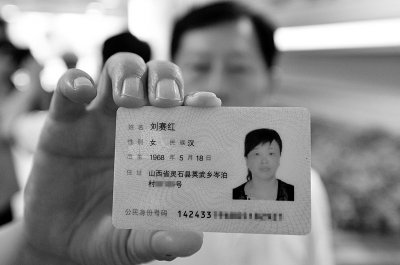 姓名 刘赛红
性别 女 民族 汉
出生 1968 年 5 月 18 日
住址 山西省灵石县英武乡岑泊
村 号
公民身份号码 142433